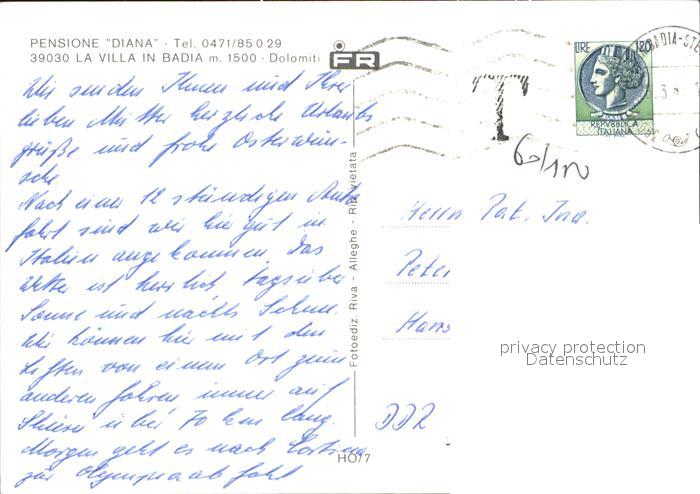 PENSIONE "DIANA" - Tel. 0471/85029
39030 LA VILLA IN BADIA m. 1500 - Dolomiti
FR
Wir senden Ihnen und Ihrer
lieben Mutter herzliche Urlaubs
grüße und frohe Osterwün-
sche.
Nach einer 12 stündigen Auto
fahrt sind wir hier gut in
Italien angekommen. Das
Wetter ist herrlich tagsüber
Sonne und nachts Schnee.
Wir können hier mit den
Liften von einem Ort zum
anderen fahren immer auf
Skiern über 70 km lang.
Morgen geht es nach Cortina
zur Olympiaabfahrt
HO77
Fotoediz. Riva - Alleghe - Rip. vietata
T
60/100
LIRE 120
REPVBBLICA
ITALIANA
BADIA-STE
Herrn Pat. Ing.
Peter
Hans
DDR
privacy protection
Datenschutz